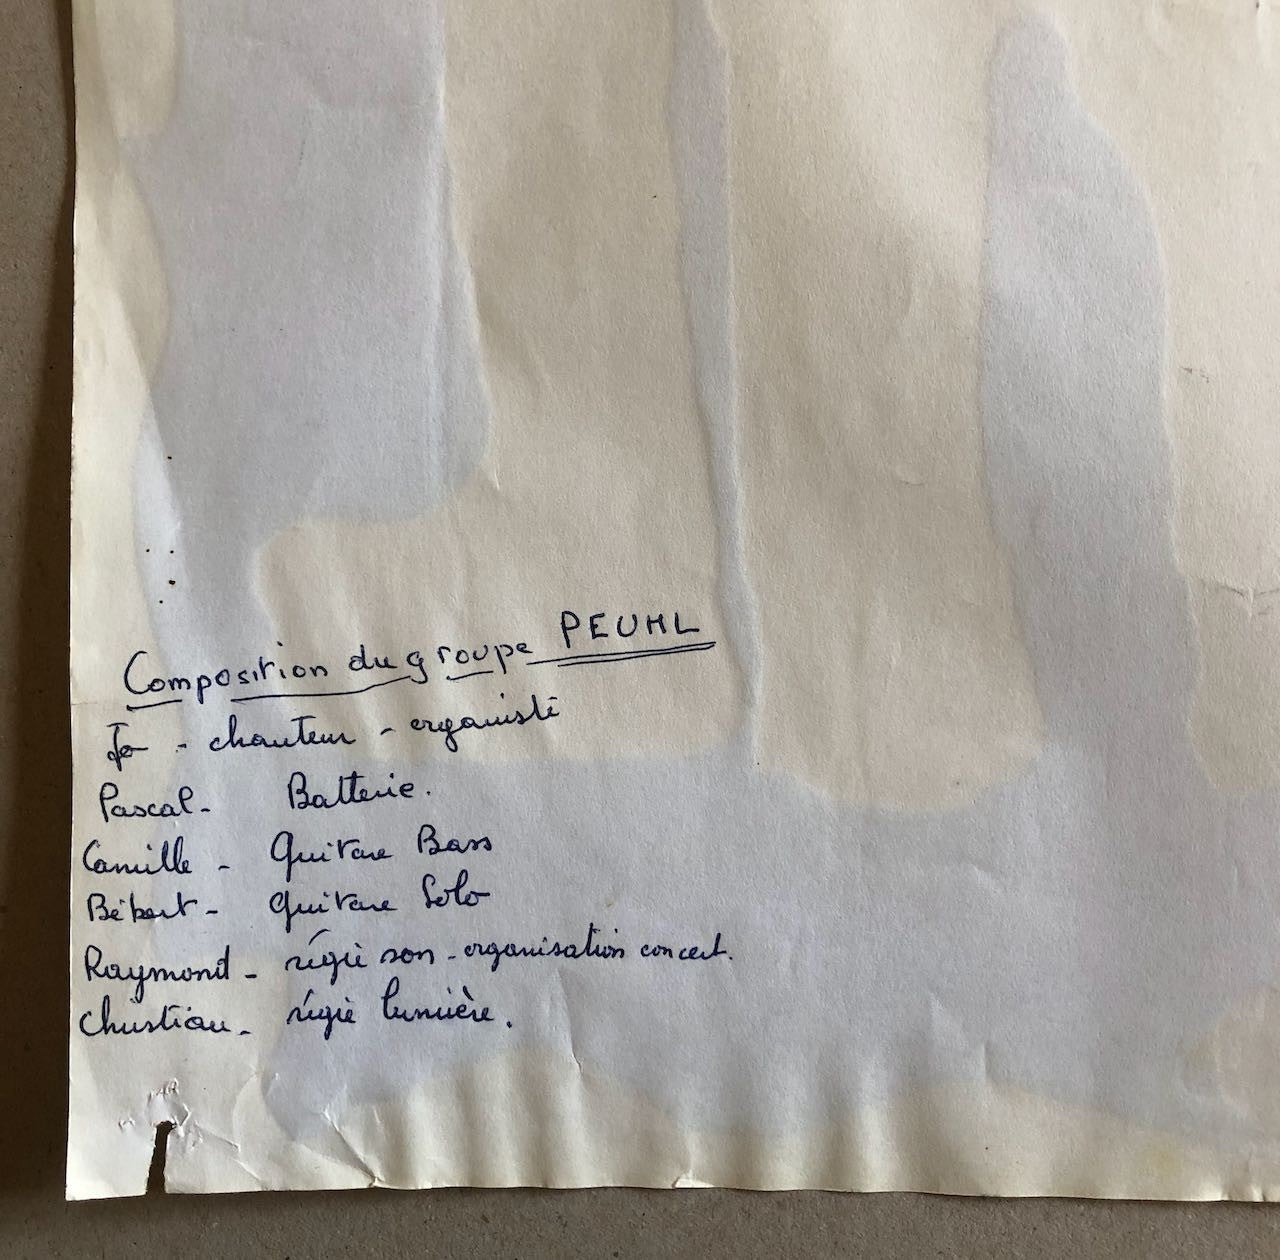 Composition du groupe PEUHL
Jo - chanteur - organiste
Pascal - Batterie.
Camille - Guitare Bass
Bébert - Guitare Solo
Raymond - régie son - organisation concert.
Christian - régie lumière.